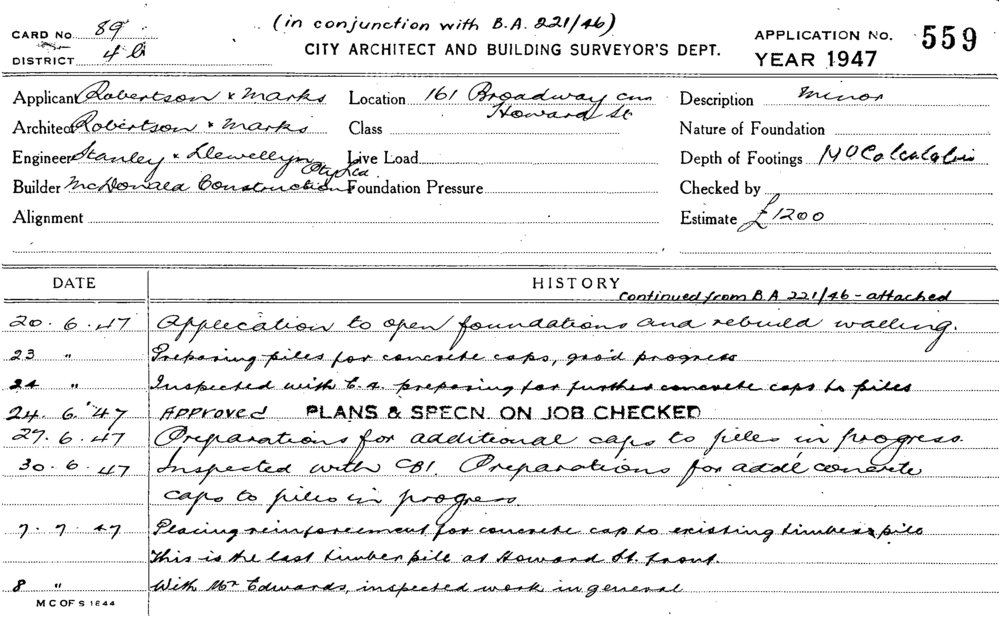 (in conjunction with B.A. 221/46)
CARD No. 89
DISTRICT 4b
CITY ARCHITECT AND BUILDING SURVEYOR'S DEPT.
APPLICATION No. 559
YEAR 1947
Applicant Robertson & Marks
Location 161 Broadway cnr
Howard St
Description Minor
Architect Robertson & Marks
Class
Nature of Foundation
Engineer Stanley & Llewellyn Pty Ltd
Live Load
Depth of Footings
Builder McDonald Construction
Foundation Pressure
Checked by
Alignment
Estimate £1200
DATE HISTORY
continued from B.A 221/46 - attached
20.6.47 Application to open foundations and rebuild walling.
23 " Preparing piles for concrete caps, good progress
24 " Inspected with preparing for further concrete caps to piles
24.6.47 APPROVED PLANS & SPECN. ON JOB CHECKED
27.6.47 Preparations for additional caps to piles in progress.
30.6.47 Inspected with CBI. Preparations for addl concrete
caps to piles in progress.
7.7.47 Placing reinforcement for concrete cap to existing timber pile
This is the last timber pile at Howard St. front.
8 " With Mr Edwards, inspected work in general
M C OF S 1844